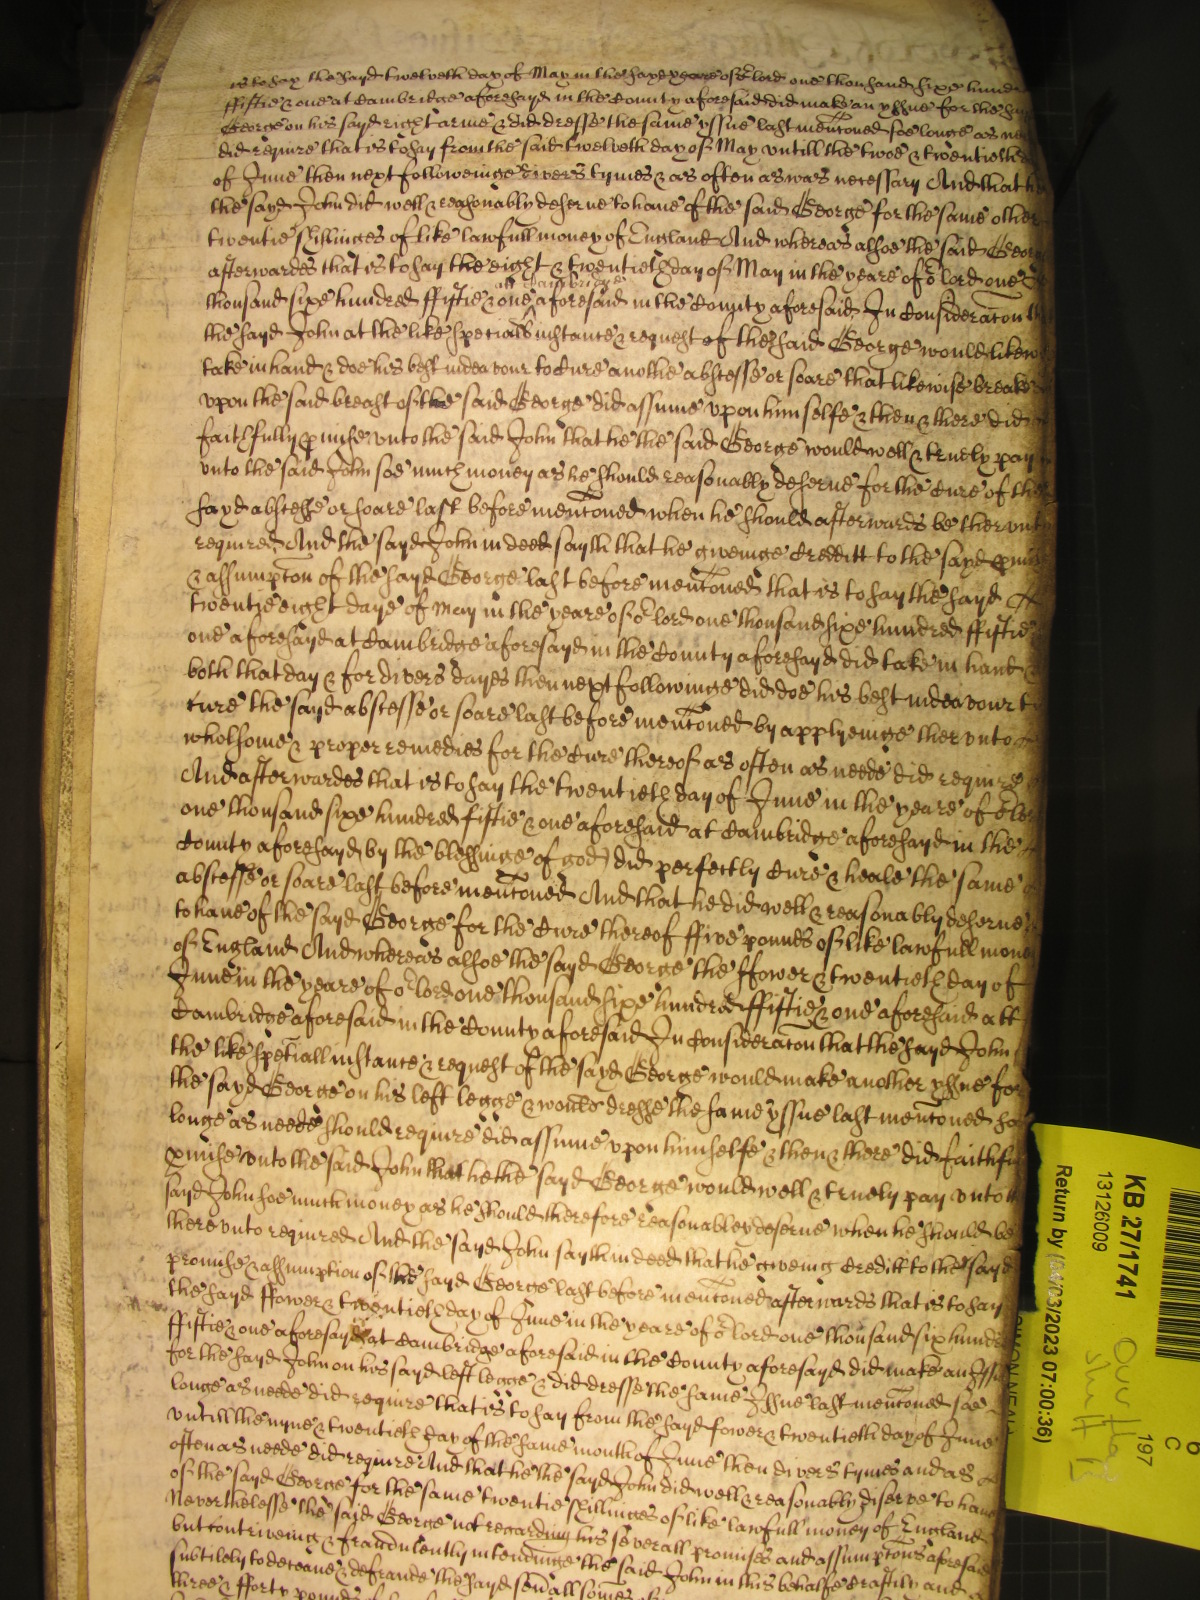 is to say the sayd twelveth day of May in the sayd yeare of or lord one thousand sixe hund
ffiftie & one at Cambridge aforesayd in the County aforesaid did make an yssue for the
George on his sayd right arme & did dresse the same yssue last mencioned soe longe as
did require that is to say from the said twelveth day of May untill the twoe & twentieth
of June then next followeinge divers tymes & as often as was necessary And that
the sayd John did well & reasonably deserve to have of the said George for the same other
twentie shillinges of like lawfull money of England And whereas alsoe the said Geor
afterwardes that is to say the eight & twentieth day of May in the yeare of or lord one
at Cambridge
thousand sixe hundred ffiftie & one aforesaid in the County aforesaid In Consideracon
the sayd John at the like speciall instance & request of the said George would likew
take in hand & doe his best indeavour to Cure another abscesse or soare that likewise breake
upon the said breast of the said George did assume upon himselfe & then & there did
faithfully pmise unto the said John that he the said George would well & truely pay
unto the said John soe much money as he should reasonably deserve for the Cure of the
sayd abscesse or soare last before mencioned when he should afterwards be therunto
required And the sayd John in deed sayth that he giveinge Creditt to the sayd pmise
& assumpton of the sayd George last before mencioned that is to say the sayd
twentie eight daye of May in the yeare of or lord one thousand sixe hundred ffiftie
one aforesayd at Cambridge aforesayd in the County aforesayd did take in hand
both that day & for divers dayes then next followinge did doe his best indeavour to
Cure the sayd abscesse or soare last before mencioned by applyeinge therunto
wholsome & proper remedies for the Cure thereof as often as neede did require
And afterwardes that is to say the twentieth day of June in the yeare of or lor
one thousand sixe hundred fiftie & one aforesaid at Cambridge aforesayd in the
County aforesayd (by the blessinge of god) did perfectly Cure & heale the same
abscesse or soare last before mencioned And that he did well & reasonably deserve
to have of the sayd George for the Cure thereof ffive pounds of like lawfull mone
of England And whereas alsoe the sayd George the ffower & twentieth day of
June in the yeare of or lord one thousand sixe hundred ffiftie & one aforesaid att
Cambridge aforesaid in the County aforesaid In Consideracon that the sayd John
the like speciall instance & request of the sayd George would make another yssue for
the sayd George on his left legge & would dresse the same yssue last mencioned so
longe as neede should require did assume upon himselfe & then & there did faithfu
pmise unto the said John that he the sayd George would well & truely pay unto
sayd John soe much money as he should therefore reasonabley deserve when he should be
thereunto required And the sayd John sayth in deed that he giveing Creditt to the sayd
promise & assumption of the sayd George last before mencioned afterwards that is to say
the sayd ffower & twentieth day of June in the yeare of or lord one thousand six hundre
ffiftie & one aforesayd at Cambridge aforesaid in the County aforesayd did make an Issu
for the sayd John on his sayd left legge & did dresse the same Issue last mencioned soe
longe as neede did require that is to say from the sayd fower & twentieth day of June
untill the nyne & twentieth day of the same month of June then divers tymes and as
often as neede did require And that he the sayd John did well & reasonably deserve to have
of the sayd George for the same twentie shillinges of like lawfull money of England
Neverthelesse the said George not regarding his severall promises and assumptons aforesaid
but contriveing & fraudulently intendinge the said John in this behalfe Craftily and
subtilely to deceave & defraude the sayd sevall somes
three & fforty pounds
KB 27/1741
13126009
Return by (04/03/2023 07:00:36)
197
C